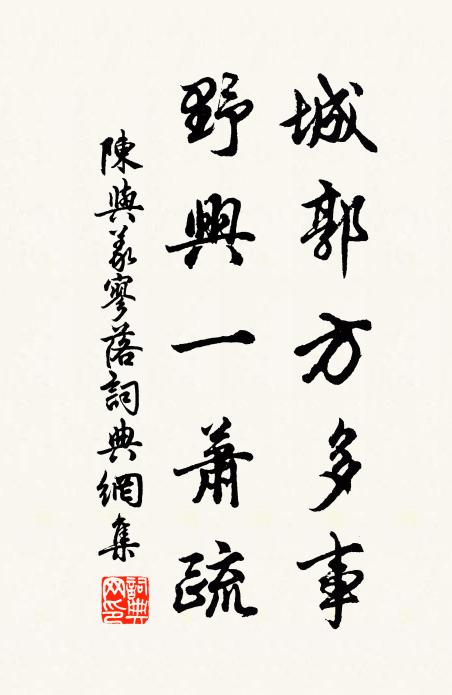 城郭方多事
野興一蕭疏
陳與義寥落詞典網集
詞典网印